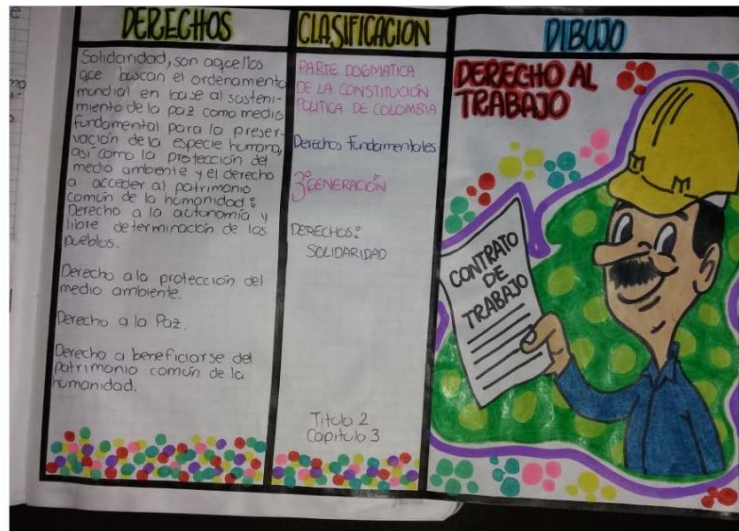 DERECHOS
Solidaridad, son aquellos
que buscan el ordenamento
mundial en base al sosteni-
miento de la paz como medio
fundamental para la preser-
vación de la especie humana,
asi como la protección del
medio ambiente y el derecho
a acceder al patrimonio
común de la humanidad:
Derecho a la autonomía y
libre determinación de los
pueblos.
Derecho a la protección del
medio ambiente.
Derecho a la Paz.
Derecho a beneficiarse del
patrimonio común de la
humanidad.
CLASIFICACION
PARTE DOGMATICA
DE LA CONSTITUCIÓN
POLITICA DE COLOMBIA
Derechos Fundamentales
3ª GENERACIÓN
DERECHOS:
SOLIDARIDAD
Titulo 2
Capitulo 3
DIBUJO
DERECHO AL
TRABAJO
CONTRATO
DE
TRABAJO